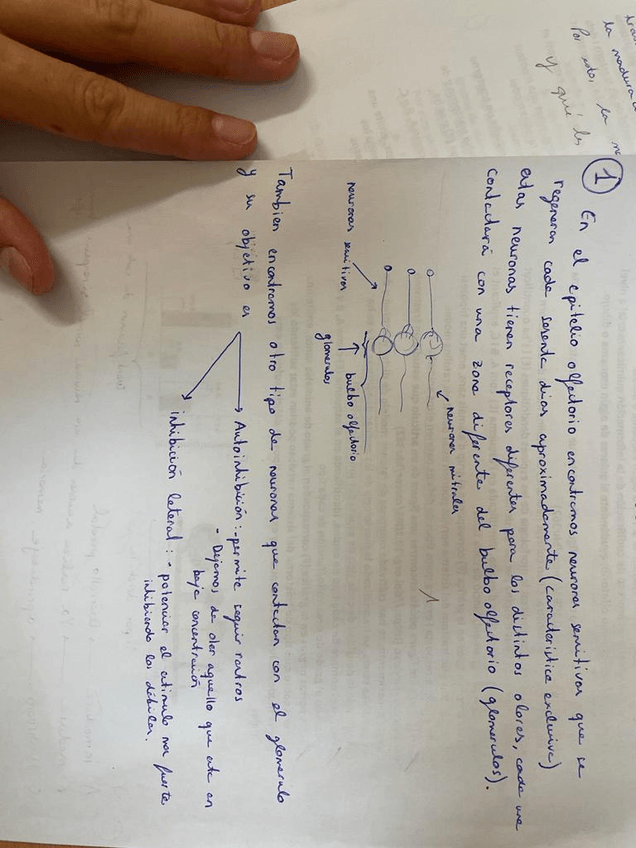 ① En el epitelio olfatorio encontramos neuronas sensitivas que se
regeneran cada sesenta dias aproximadamente (caracteristica exclusiva)
estas neuronas tienen receptores diferentes para los distintos olores, cada una
contactará con una zona diferente del bulbo olfatorio (glomerulos).
neuronas mitrales
neuronas sensitivas
bulbo olfatorio
glomerulos
1
Tambien encontramos otro tipo de neuronas que contactan con el glomerulo
y su objetivo es
Autoinhibición: - permite seguir rastros
- Dejamos de oler aquello que este en
baja concentración
inhibición lateral: - potenciar el estimulo mas fuerte
inhibiendo los débiles.
la madura
Por esto, la
y qué